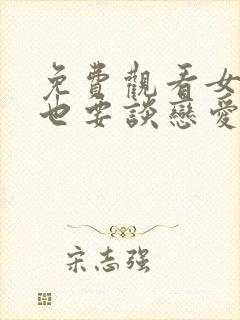 免費觀看女
也要談戀愛
宋志強